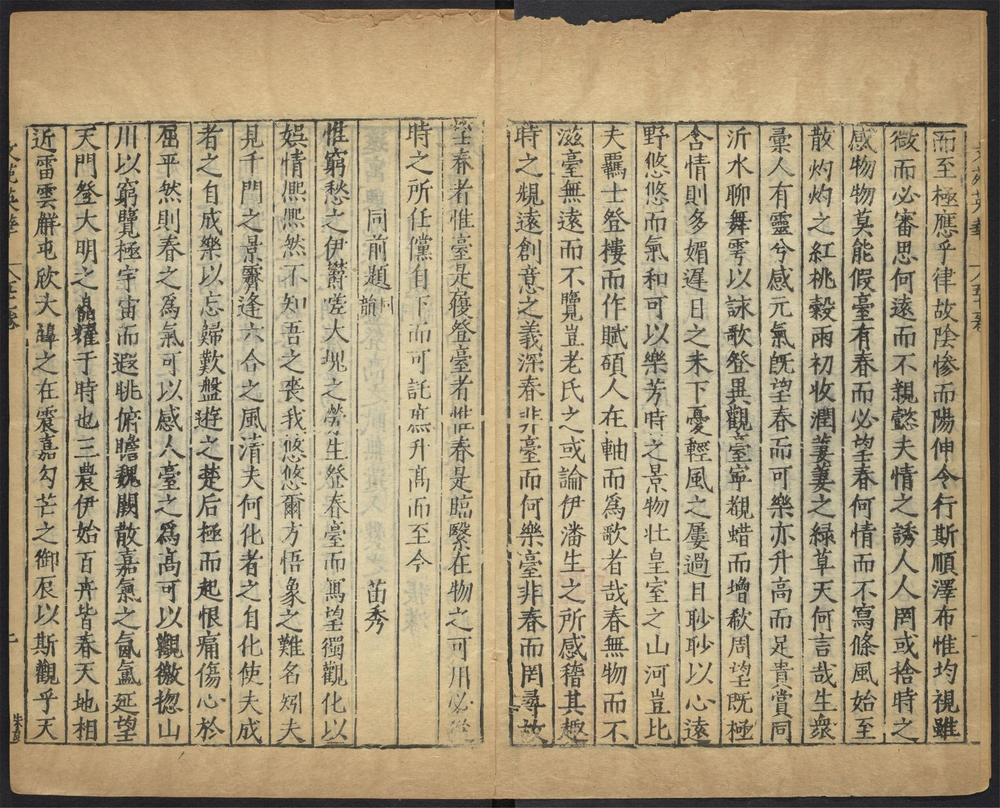 而至極應乎律故陰慘而陽伸令行斯順澤布惟均視雖
微而必審思何遠而不親懿夫情之誘人人罔或捨時之
感物物莫能假臺有春而必望春何情而不寫條風始至
散灼灼之紅桃榖雨初收潤萋萋之緑草天何言哉生衆
彙人有靈兮感元氣旣望春而可樂亦升高而足貴賞同
沂水聊舞雩以詠歌登異觀臺寧觀蜡而增欷周望旣極
含情則多媚遲日之未下憂輕風之屢過目眇眇以心遠
野悠悠而氣和可以樂芳時之景物壮皇室之山河豈比
夫羈士登樓而作賦碩人在軸而爲歌者哉春無物而不
滋臺無遠而不覽豈老氏之或論伊潘生之所感稽其趣
時之規遠創意之義深春非臺而何樂臺非春而罔尋故
登春者惟臺是優登臺者惟春是臨繄在物之可用必
時之所任儻自下而可託庶升髙而至今
同前題 同韻 苗秀
惟窮愁之伊鬱嗟大塊之勞生登春臺而寓望獨觀化以
娯情熈熈然不知吾之喪我悠悠爾方悟象之難名矧夫
見千門之景霽逢六合之風清夫何化者之自化使夫成
者之自成樂以忘歸歎盤遊之楚后極而起恨痛傷心於
屈平然則春之爲氣可以感人臺之爲髙可以觀徼揔山
川以窮覽極宇宙而遐眺俯瞻魏闕散嘉氣之氤氳延望
天門登大明之晶耀于時也三農伊始百卉皆春天地相
近雷雲解屯欣大皥之在震嘉勾芒之御辰以斯觀乎天